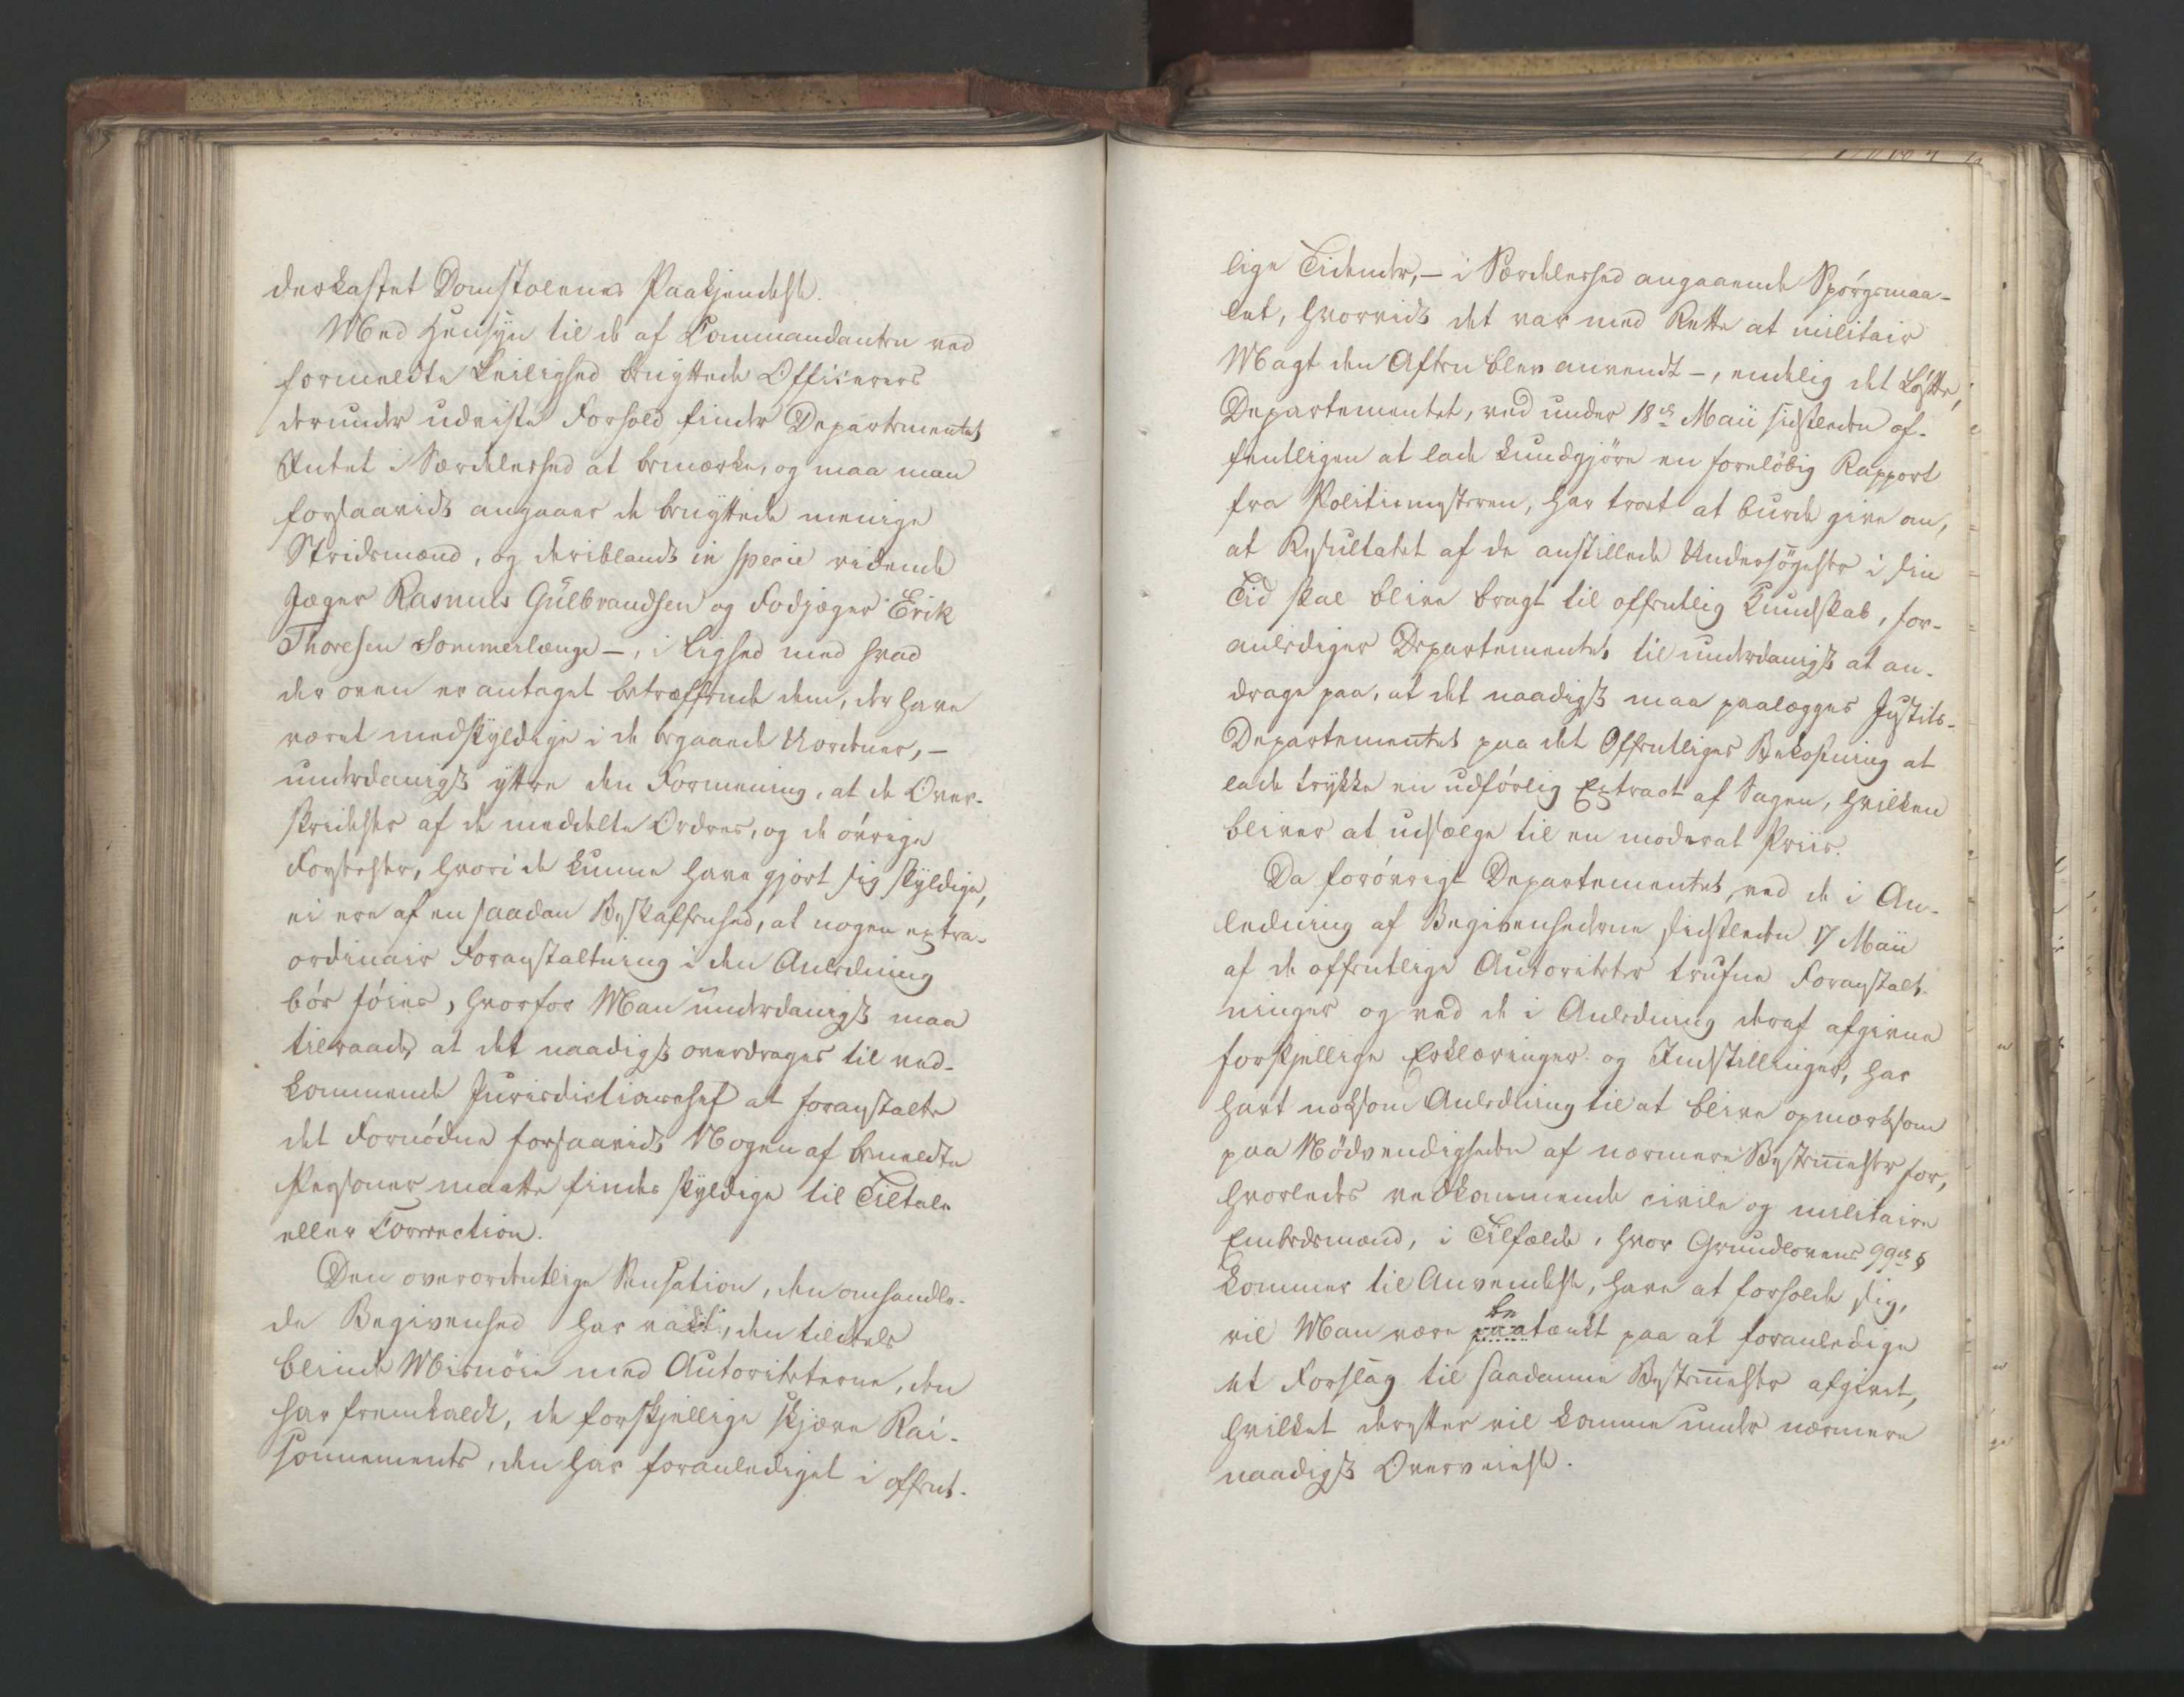 derkastet Domstolenes Paakjendelse.
Med Hensyn til de af Commandanten ved
formeldte Leilighed benyttede Officierers
derunder udviste Forhold finder Departementet
Intet i Særdeleshed at bemærke, og maa man
forsaavidt angaaer de benyttede menige
Stridsmænd, og deriblandt in specie ridende
Jæger Rasmus Gulbrandsen og Fodjæger Erik
Thoresen Sommerlænge –, i Lighed med hvad
der oven er antaget betræffende dem, der have
været medskyldige i de begaaede Uordener, –
underdanigst yttre den Formening, at de Over-
skridelser af de meddelte Ordres, og de øvrige
Forseelser, hvori de kunne have gjort sig skyldige,
ei ere af en saadan Beskaffenhed, at nogen extra-
ordinair Foranstaltning i den Anledning
bör föies, hvorfor Man underdanigst maa
tilraade, at det naadigst overdrages til ved-
kommende Jurisdictionschef at foranstalte
det Fornödne forsaavidt Nogen af bemeldte
Personer maatte findes skyldige til Tiltale
eller Correction.
Den overordentlige Sensation, den omhandle-
de Begivenhed har vakt, den tildeels
blinde Misnöie med Autoriteterne, den
har fremkaldt, de forskjellige skjæve Rai-
sonnements, den har foranlediget i offent-
lige Tidender, – i Særdeleshed angaaende Spörgsmaa-
let, hvorvidt det var med Rette at militair
Magt den Aften blev anvendt –, endelig det Löfte,
Departementet, ved under 18de Maii sidstleden of-
fentligen at lade kundgjöre en foreløbig Rapport
fra Politiemesteren, har troet at burde give om,
at Resultatet af de anstillede Undersögelser i sin
Tid skal blive bragt til offentlig Kundskab, for-
anlediger Departementet til underdanigst at an-
drage paa, at det naadigst maa paalægges Justits-
Departementet paa det Offentliges Bekostning at
lade trykke en udförlig Extract af Sagen, hvilken
bliver at udsælge til en moderat Priis.
Da forövrigt Departementet, ved de i An-
ledning af Begivenhederne sidstleden 17 Maii
af de offentlige Autoriteter trufne Foranstalt-
ninger og ved de i Anledning deraf afgivne
forskjellige Erklæringer og Indstillinger, har
havt noksom Anledning til at blive opmærksom
paa Nödvendigheden af nærmere Bestemmelser for,
hvorledes vedkommende civile og militaire
Embedsmænd, i Tilfælde, hvor Grundlovens 99de §
kommer til Anvendelse, have at forholde sig,
vil Man være paatænkt be paa at foranledige
et Forslag til saadanne Bestemmelser afgivet,
hvilket derefter vil komme under nærmere
naadigst Overveielse.